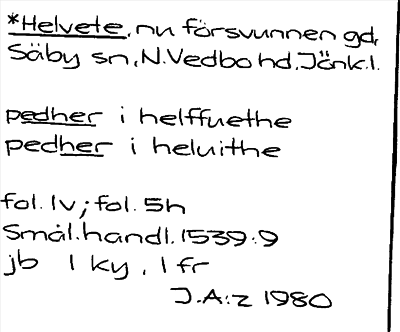 *Helvete, nu försvunnen gd,
Säby sn, N.Vedbo hd, Jönk.l.
pedher i helffuethe
pedher i heluithe
fol. 1v; fol. 5h
Smål.handl. 1539:9
jb 1 ky, 1 fr
J.A:z 1980